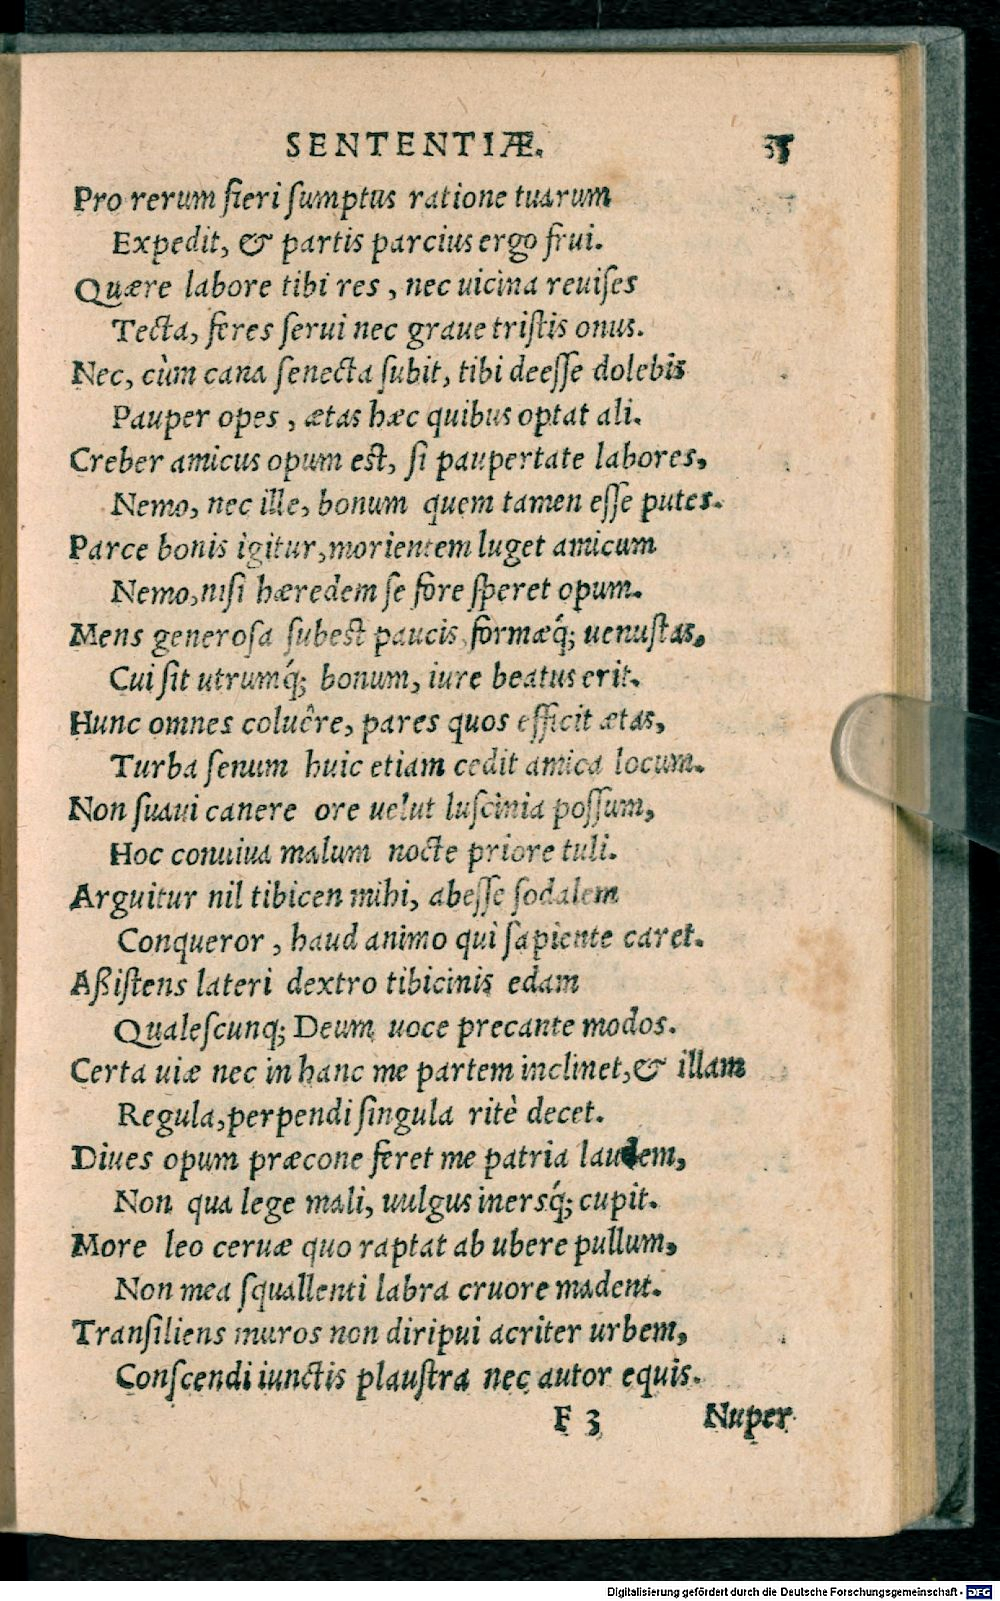 SENTENTIÆ. 35
Pro rerum fieri ſumptus ratione tuarum
Expedit, & partis parcius ergo frui.
Quære labore tibi res, nec uicina reuiſes
Tecta, feres ſerui nec graue triſtis onus.
Nec, cùm cana ſenecta ſubit, tibi deeſſe dolebis
Pauper opes, ætas hæc quibus optat ali.
Creber amicus opum eſt, ſi paupertate labores,
Nemo, nec ille, bonum quem tamen eſſe putes.
Parce bonis igitur, morientem luget amicum
Nemo, niſi hæredem ſe fore ſperet opum.
Mens generoſa ſubeſt paucis, formæq́; uenuſtas,
Cui ſit utrumq́; bonum, iure beatus erit.
Hunc omnes coluêre, pares quos efficit ætas,
Turba ſenum huic etiam cedit amica locum.
Non ſuaui canere ore uelut luſcinia poſſum,
Hoc conuiua malum nocte priore tuli.
Arguitur nil tibicen mihi, abeſſe ſodalem
Conqueror, haud animo qui ſapiente caret.
Aßiſtens lateri dextro tibicinis edam
Qualeſcunq; Deum uoce precante modos.
Certa uiæ nec in hanc me partem inclinet, & illam
Regula, perpendi ſingula ritè decet.
Diues opum præcone feret me patria laudem,
Non qua lege mali, uulgus inersq́; cupit.
More leo ceruæ quo raptat ab ubere pullum,
Non mea ſquallenti labra cruore madent.
Tranſiliens muros non diripui acriter urbem,
Conſcendi iunctis plauſtra nec autor equis.
F 3 Nuper
Digitalisierung gefördert durch die Deutsche Forschungsgemeinschaft - DFG